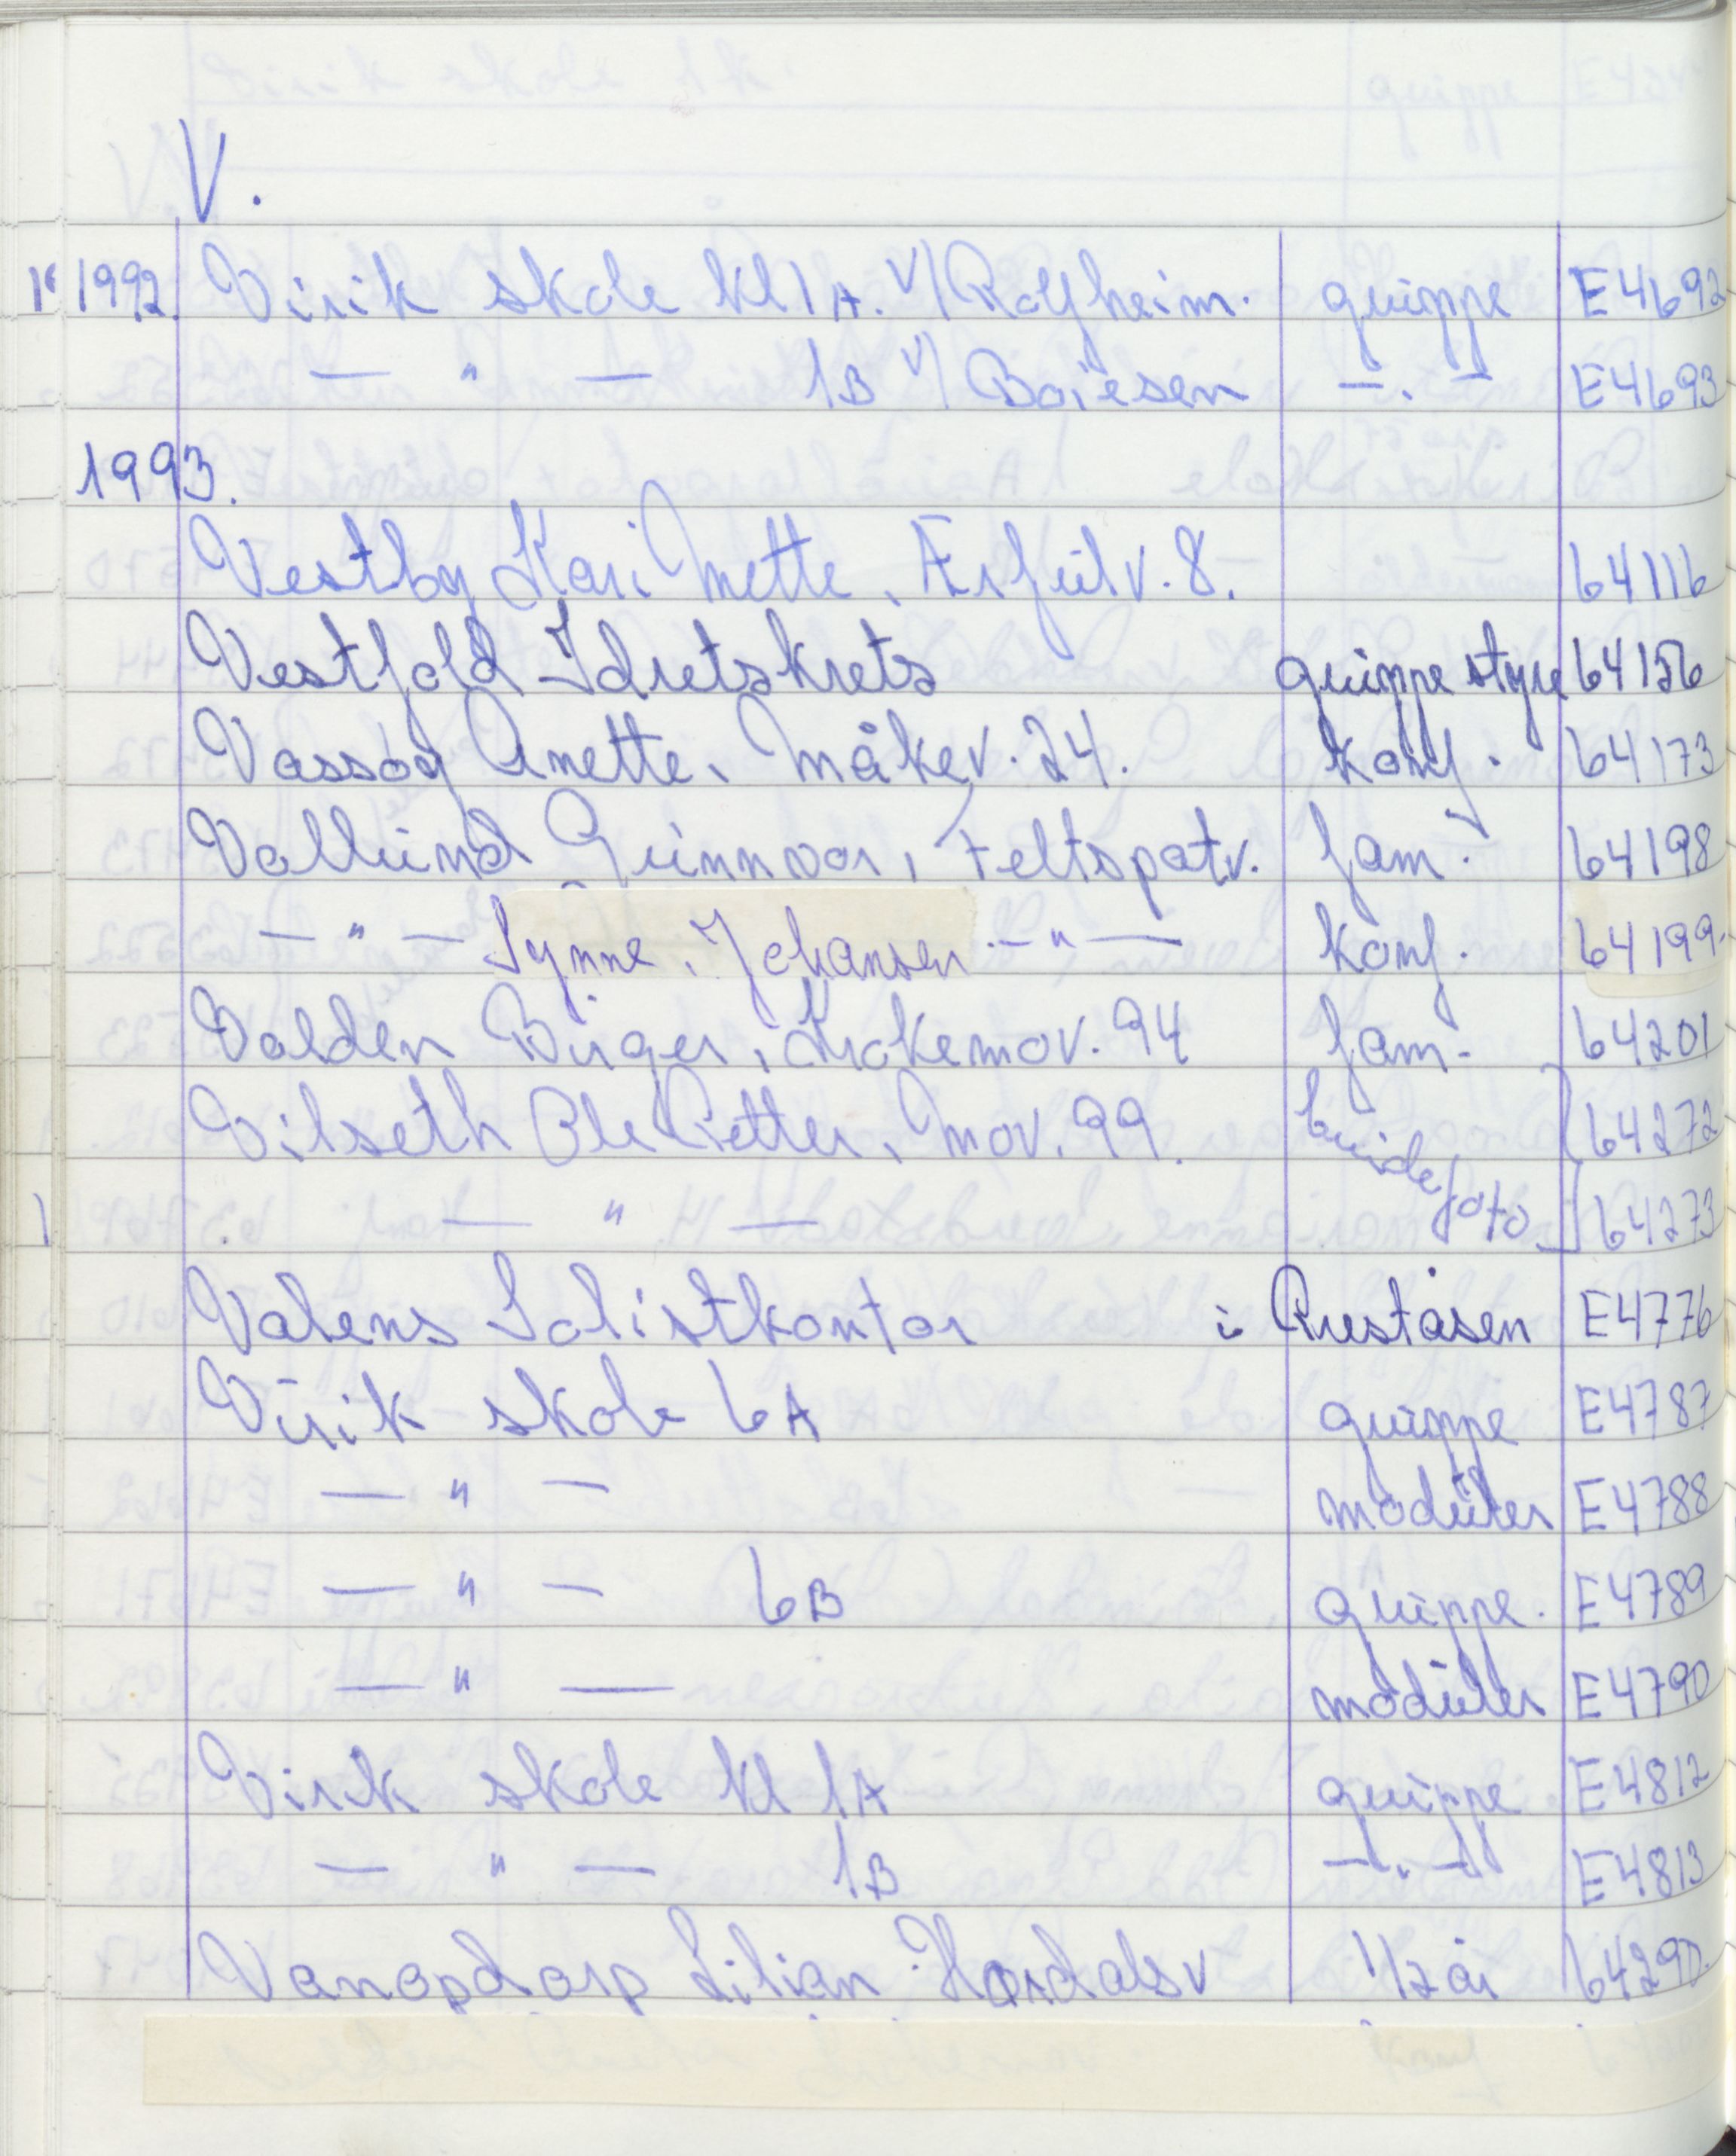 V.
1992. Virik skole kl 1A. v/Rolfheim. gruppe E4692
— " — 1B v/ Boiesen —.— E4693
1993.
Vestby Kari Mette, Ærfulv. 8. 64116
Vestfold Idretskrets gruppe styre 64156
Vassøy Anette, Måkev. 24. konf. 64173
Vallund Gunnvor, Feltspatv. fam. 64198
— " — Synne. Johansen — " — konf. 64199.
Valden Birger, Krokemov. 94 fam. 64201
Vilseth Ole Petter, Mov. 99. brudefoto 64272
— " — 64273
Valens Solistkontor i Preståsen E4776
Virik skole 6A gruppe E4787
— " — moduler E4788
— " — 6B gruppe. E4789
— " — moduler E4790
Virik skole kl 1A gruppe E4812
— " — 1B —.— E4813
Vanopdorp Lilian Hordalsv 1/2 år 64290.